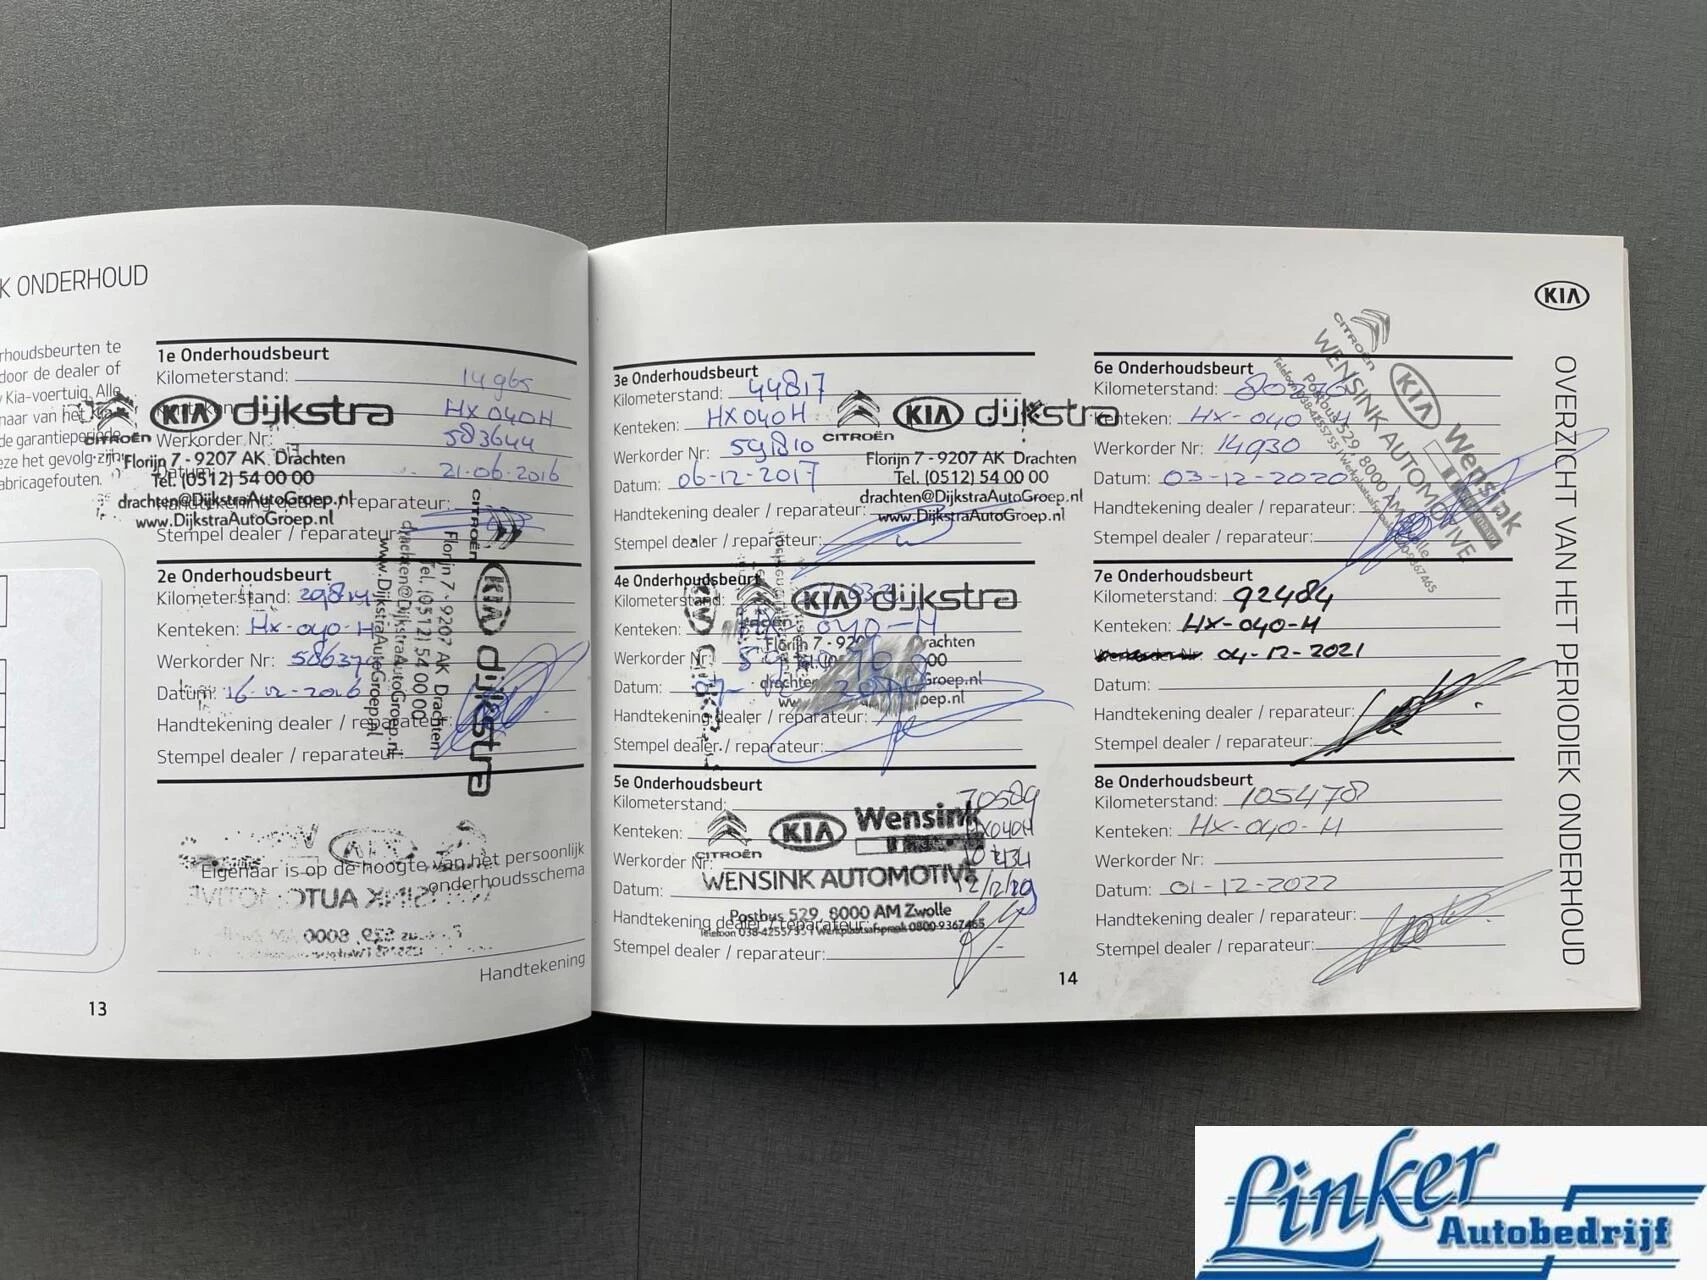 K ONDERHOUD
rhoudsbeurten te
door de dealer of
Kia-voertuig. Alle
naar van het
de garantieperiode
eze het gevolg zijn
abricagefouten.
1e Onderhoudsbeurt
Kilometerstand: 14965
Kenteken: HX040H
Werkorder Nr: 583644
Datum: 21-06-2016
Handtekening dealer / reparateur:
Stempel dealer / reparateur:
CITROËN KIA dijkstra
Florijn 7 - 9207 AK Drachten
Tel. (0512) 54 00 00
drachten@DijkstraAutoGroep.nl
www.DijkstraAutoGroep.nl
2e Onderhoudsbeurt
Kilometerstand:
Kenteken: HX-040-H
Werkorder Nr:
Datum: 16-12-2016
Handtekening dealer / reparateur:
Stempel dealer / reparateur:
CITROËN KIA dijkstra
Florijn 7 - 9207 AK Drachten
Tel. (0512) 54 00 00
drachten@DijkstraAutoGroep.nl
www.DijkstraAutoGroep.nl
Eigenaar is op de hoogte van het persoonlijk
onderhoudsschema
Handtekening
13
3e Onderhoudsbeurt
Kilometerstand: 44817
Kenteken: HX040H
Werkorder Nr: 591810
Datum: 06-12-2017
Handtekening dealer / reparateur:
Stempel dealer / reparateur:
CITROËN KIA dijkstra
Florijn 7 - 9207 AK Drachten
Tel. (0512) 54 00 00
drachten@DijkstraAutoGroep.nl
www.DijkstraAutoGroep.nl
4e Onderhoudsbeurt
Kilometerstand:
Kenteken: 040-H
Werkorder Nr:
Datum:
Handtekening dealer / reparateur:
Stempel dealer / reparateur:
KIA dijkstra
Florijn 7 - 920 rachten
00
Groep.nl
oep.nl
5e Onderhoudsbeurt
Kilometerstand: 70589
Kenteken: HX040H
Werkorder Nr:
Datum:
Handtekening dealer / reparateur:
Stempel dealer / reparateur:
CITROËN KIA Wensink
WENSINK AUTOMOTIVE
Postbus 529, 8000 AM Zwolle
Telefoon 038-4255755 | Werkplaatsafspraak 0800-9367465
14
KIA
6e Onderhoudsbeurt
Kilometerstand:
Kenteken: HX-040 H
Werkorder Nr: 14930
Datum: 03-12-2020
Handtekening dealer / reparateur:
Stempel dealer / reparateur:
CITROËN KIA Wensink
WENSINK AUTOMOTIVE
Postbus 529, 8000 AM Zwolle
7e Onderhoudsbeurt
Kilometerstand: 92484
Kenteken: HX-040-H
Werkorder Nr: 04-12-2021
Datum:
Handtekening dealer / reparateur:
Stempel dealer / reparateur:
8e Onderhoudsbeurt
Kilometerstand: 105478
Kenteken: HX-040-H
Werkorder Nr:
Datum: 01-12-2022
Handtekening dealer / reparateur:
Stempel dealer / reparateur:
OVERZICHT VAN HET PERIODIEK ONDERHOUD
Linker
Autobedrijf